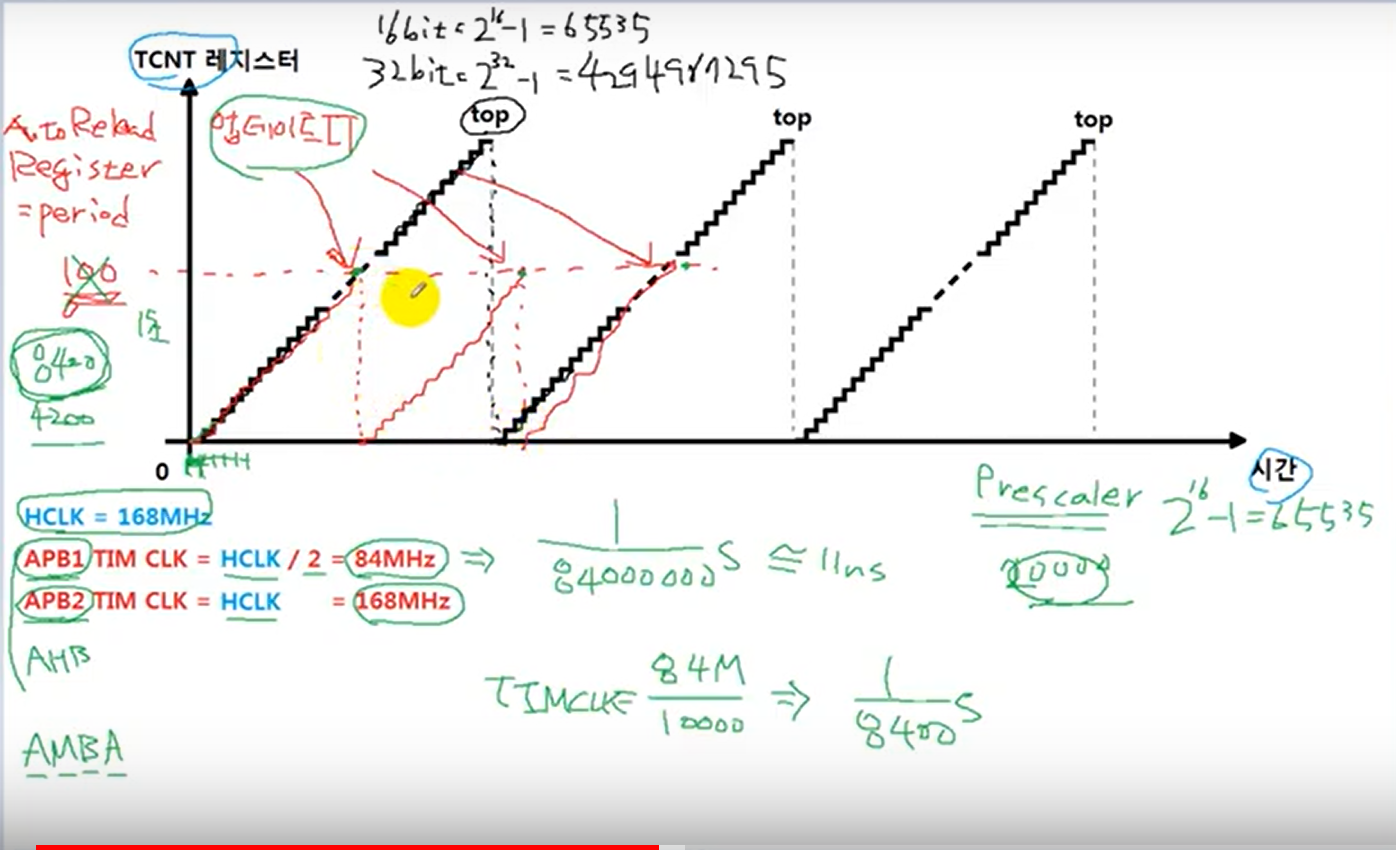 16bit = 2^16-1 = 65535
TCNT 레지스터
32bit = 2^32-1 = 4294967295
Auto Reload
Register
= period
업데이트
top
top
top
100
1초
8400
4200
0
시간
HCLK = 168MHz
APB1 TIM CLK = HCLK / 2 = 84MHz ⇒ 1/84000000 S ≅ 11ns
APB2 TIM CLK = HCLK = 168MHz
Prescaler 2^16-1=65535
10000
AHB
TIMCLK= 84M/10000 ⇒ 1/8400 S
AMBA